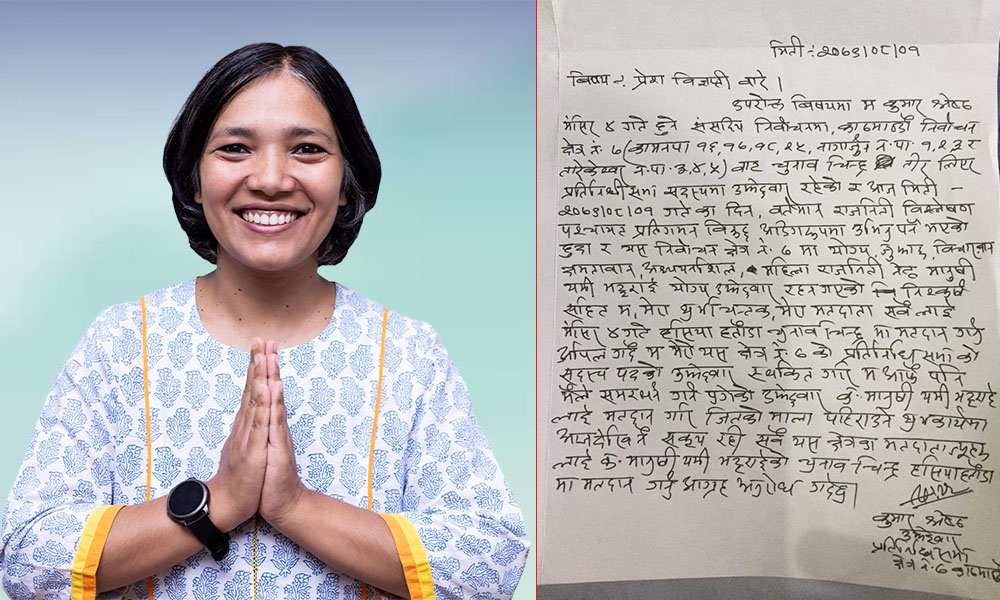 मिती :- २०७९/०८/०१
विषय :- प्रेश विज्ञप्ती बारे ।
उपरोक्त विषयमा म कुमार श्रेष्ठ
मंसिर ४ गते हुने संसदिय निर्वाचनमा, काठमाडौं निर्वाचन
क्षेत्र नं. ७ (कामनपा १६,१७,१८,२५, नागार्जुन न.पा. १,२,३ र
तारकेश्वर न.पा. ३,४,५) बाट चुनाव चिन्ह तीर लिएर
प्रतिनिधी सभा सदस्यमा उम्मेदवार रहेको र आज मिती -
गतेका दिन, वर्तमान राजनिती विश्लेषण
पश्चात प्रतिगमन विरुद्ध उभिनु पर्ने भएको
हुदा र यस निर्वाचन क्षेत्र नं. ७ मा योग्य, जुझारु,
क्षमतावान, अध्ययनशिल, महिला राजनिती मानुषी
यमी भट्टराई योग्य उम्मेदवार रहन गएको निश्कर्ष
सहित म, मेरा शुभचिन्तक, मेरा मतदाता सबै लाई
मंसिर ४ गते हसिया हतौडा चुनाव चिन्ह मा मतदान गर्नु
अपिल गर्दै म मेरो यस क्षेत्र नं ७ को प्रतिनिधि सभा को
सदस्य पदको उम्मेदवार स्थगित गरि म आफै पनि
मैले समर्थन गर्न पुगेको उम्मेदवार क. मानुषी यमी भट्टराई
लाई मतदान गरि जितको माला पहिराउने शुभकार्यमा
रही सबै यस क्षेत्रका मतदाता
लाई क. मानुषी यमी भट्टराईको चुनाव चिन्ह हसिया हतौडा
मा मतदान गर्नु आग्रह अनुरोध गर्दछु ।
कुमार श्रेष्ठ
उम्मेदवार
प्रतिनिधि सभा
क्षेत्र नं. ७ काठमाडौं